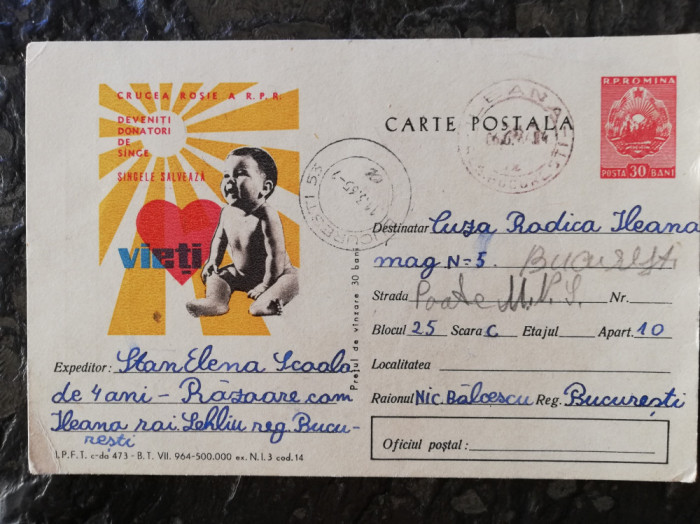 CRUCEA ROȘIE A R.P.R.
DEVENIȚI
DONATORI
DE
SÎNGE
SÎNGELE SALVEAZĂ
vieți
CARTE POSTALA
R.P.ROMINA
POSTA 30 BANI
BUCUREȘTI 53
Destinatar Cuza Rodica Ileana
mag N=5 București
Strada Poate M.V.S. Nr.
Blocul 25 Scara C Etajul Apart. 10
Localitatea
Raionul Nic. Bălcescu Reg. București
Oficiul poștal:
Prețul de vînzare 30 bani
Expeditor: Stan Elena Scoala
de 4 ani - Răzoare com
Ileana rai. Lehliu reg. Bucu-
rești
I.P.F.T. c-da 473 - B.T. VII. 964-500.000 ex. N.I.3 cod.14